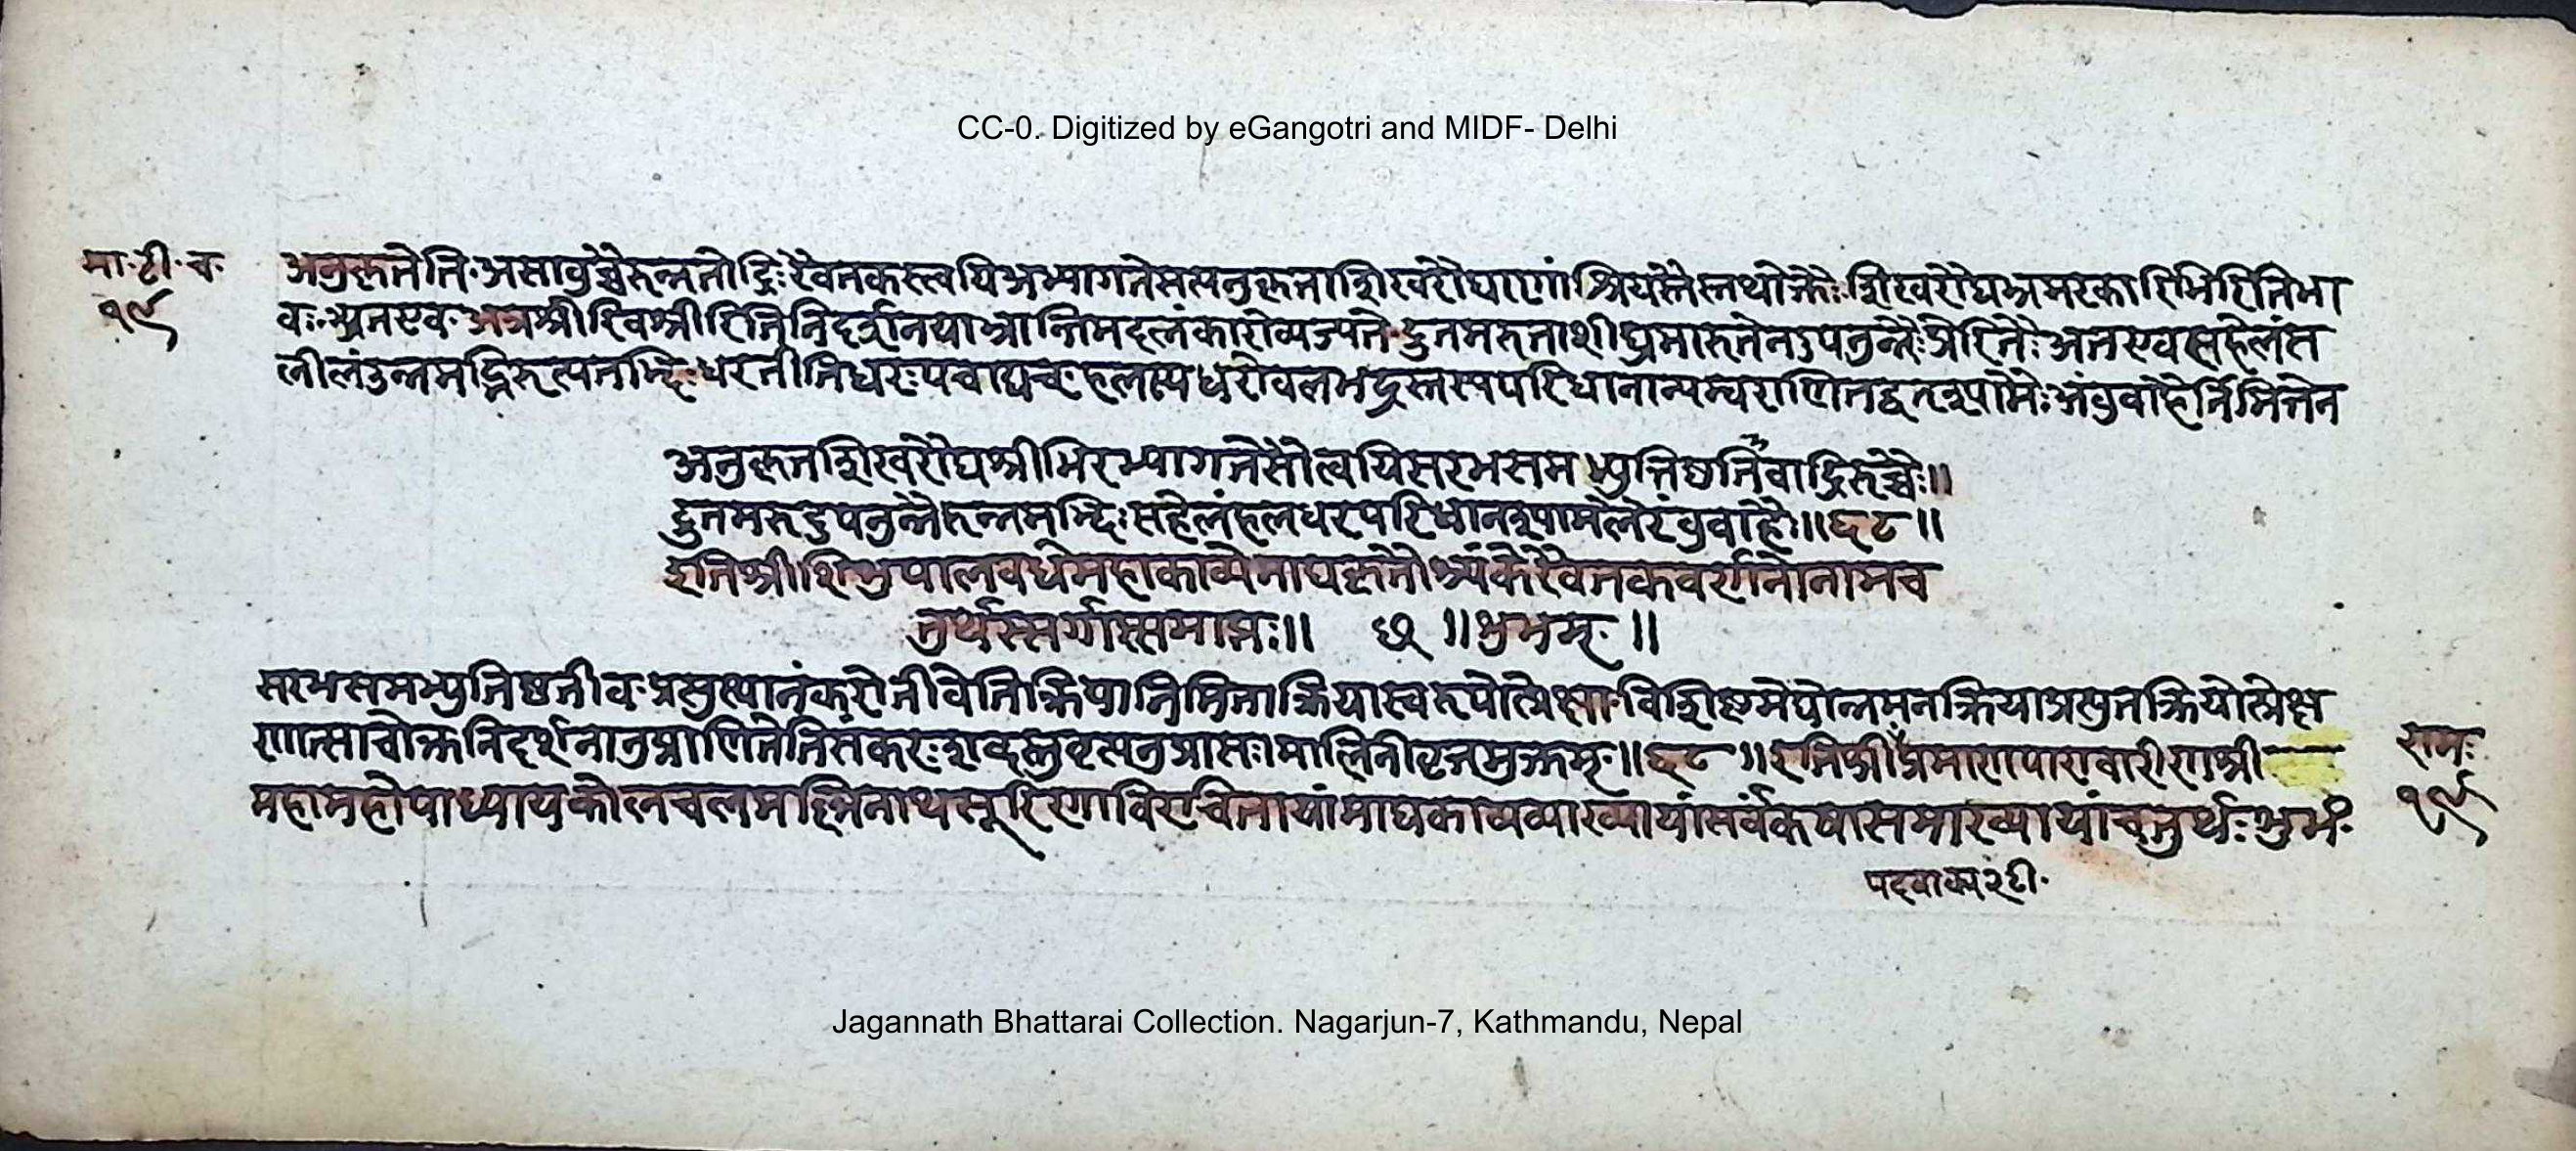 CC-0. Digitized by eGangotri and MIDF- Delhi
मा·टी·च·
१९
अनुकृतेति·असावुच्चैरुन्नतोद्रिः रैवतकस्त्वयिअभ्यागतेसत्यनुकृताशिखरौघाणांश्रियस्तैस्तथोक्तैः·शिखरौघभ्रमरकारिभिरितिभा
वः·अतएव·अत्रश्रीरिवश्रीरितिनिदर्शनयाभ्रान्तिमदलंकारोव्यज्यते·द्रुतमरुताशीघ्रमारुतेनउपनुन्नैः प्रेरितैः अतएवसहेलंत
लीलंउन्नमद्भिरुत्पतभिः धरतीतिधरः पचाद्यच् हलस्यधरोवलभद्रस्तस्यपरिधानान्यम्वराणितद्वत्श्यामैः अंवुवाहैर्निमित्तेन
अनुकृतशिखरौघश्रीभिरभ्यागतेसौत्वयिसरभसमभ्युत्तिष्ठतीवाद्रिरुच्चैः॥
द्रुतमरुदुपनुन्नैरुन्नमद्भिः सहेलंहलधरपरिधानश्यामलैरंवुवाहैः॥६८॥
इतिश्रीशिशुपालवधेमहाकाव्येमाघकृतौश्र्यंकेरैवतकवर्णनोनामच
तुर्थस्सर्गस्समाप्तः॥ छ ॥शुभम् ॥
सरभसमभ्युत्तिष्ठतीव·प्रत्युत्थानंकरोतीवेतिक्रियानिमित्ताक्रियास्वरूपोत्प्रेक्षा·विशिष्टमेघोन्नमनक्रियाप्रस्तुतक्रियोत्प्रेक्ष
णात्साचोक्तनिदर्शनानुप्राणितेतिसंकरः शब्दस्तुवृत्त्यनुप्रासः मालिनीवृत्तमुक्तम्·॥६८॥इतिश्रीप्रमाणपारावारीणश्री
महामहोपाध्यायकोलचलमल्लिनाथसूरिणाविरचितायांमाघकाव्यव्याख्यायांसर्वंकषासमाख्यायांचतुर्थः शुभं
राम·
१९
पदवाक्य २टी·
Jagannath Bhattarai Collection. Nagarjun-7, Kathmandu, Nepal